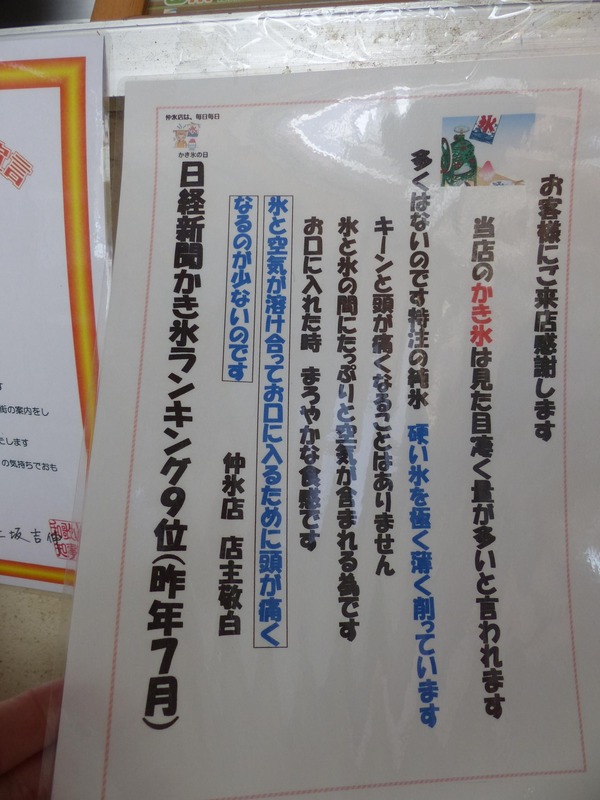 お客様にご来店感謝します
氷
当店のかき氷は見た目凄く量が多いと言われます
多くはないのです特注の純氷 硬い氷を極く薄く削っています
キーンと頭が痛くなることはありません
氷と氷の間にたっぷりと空気が含まれる為です
お口に入れた時 まろやかな食感です
氷と空気が溶け合ってお口に入るために頭が痛く
なるのが少ないのです
仲氷店 店主敬白
仲氷店は、毎日毎日
かき氷の日
日経新聞かき氷ランキング9位(昨年7月)
宣言
す
街の案内をし
たします
の気持ちでおも
上坂吉伸